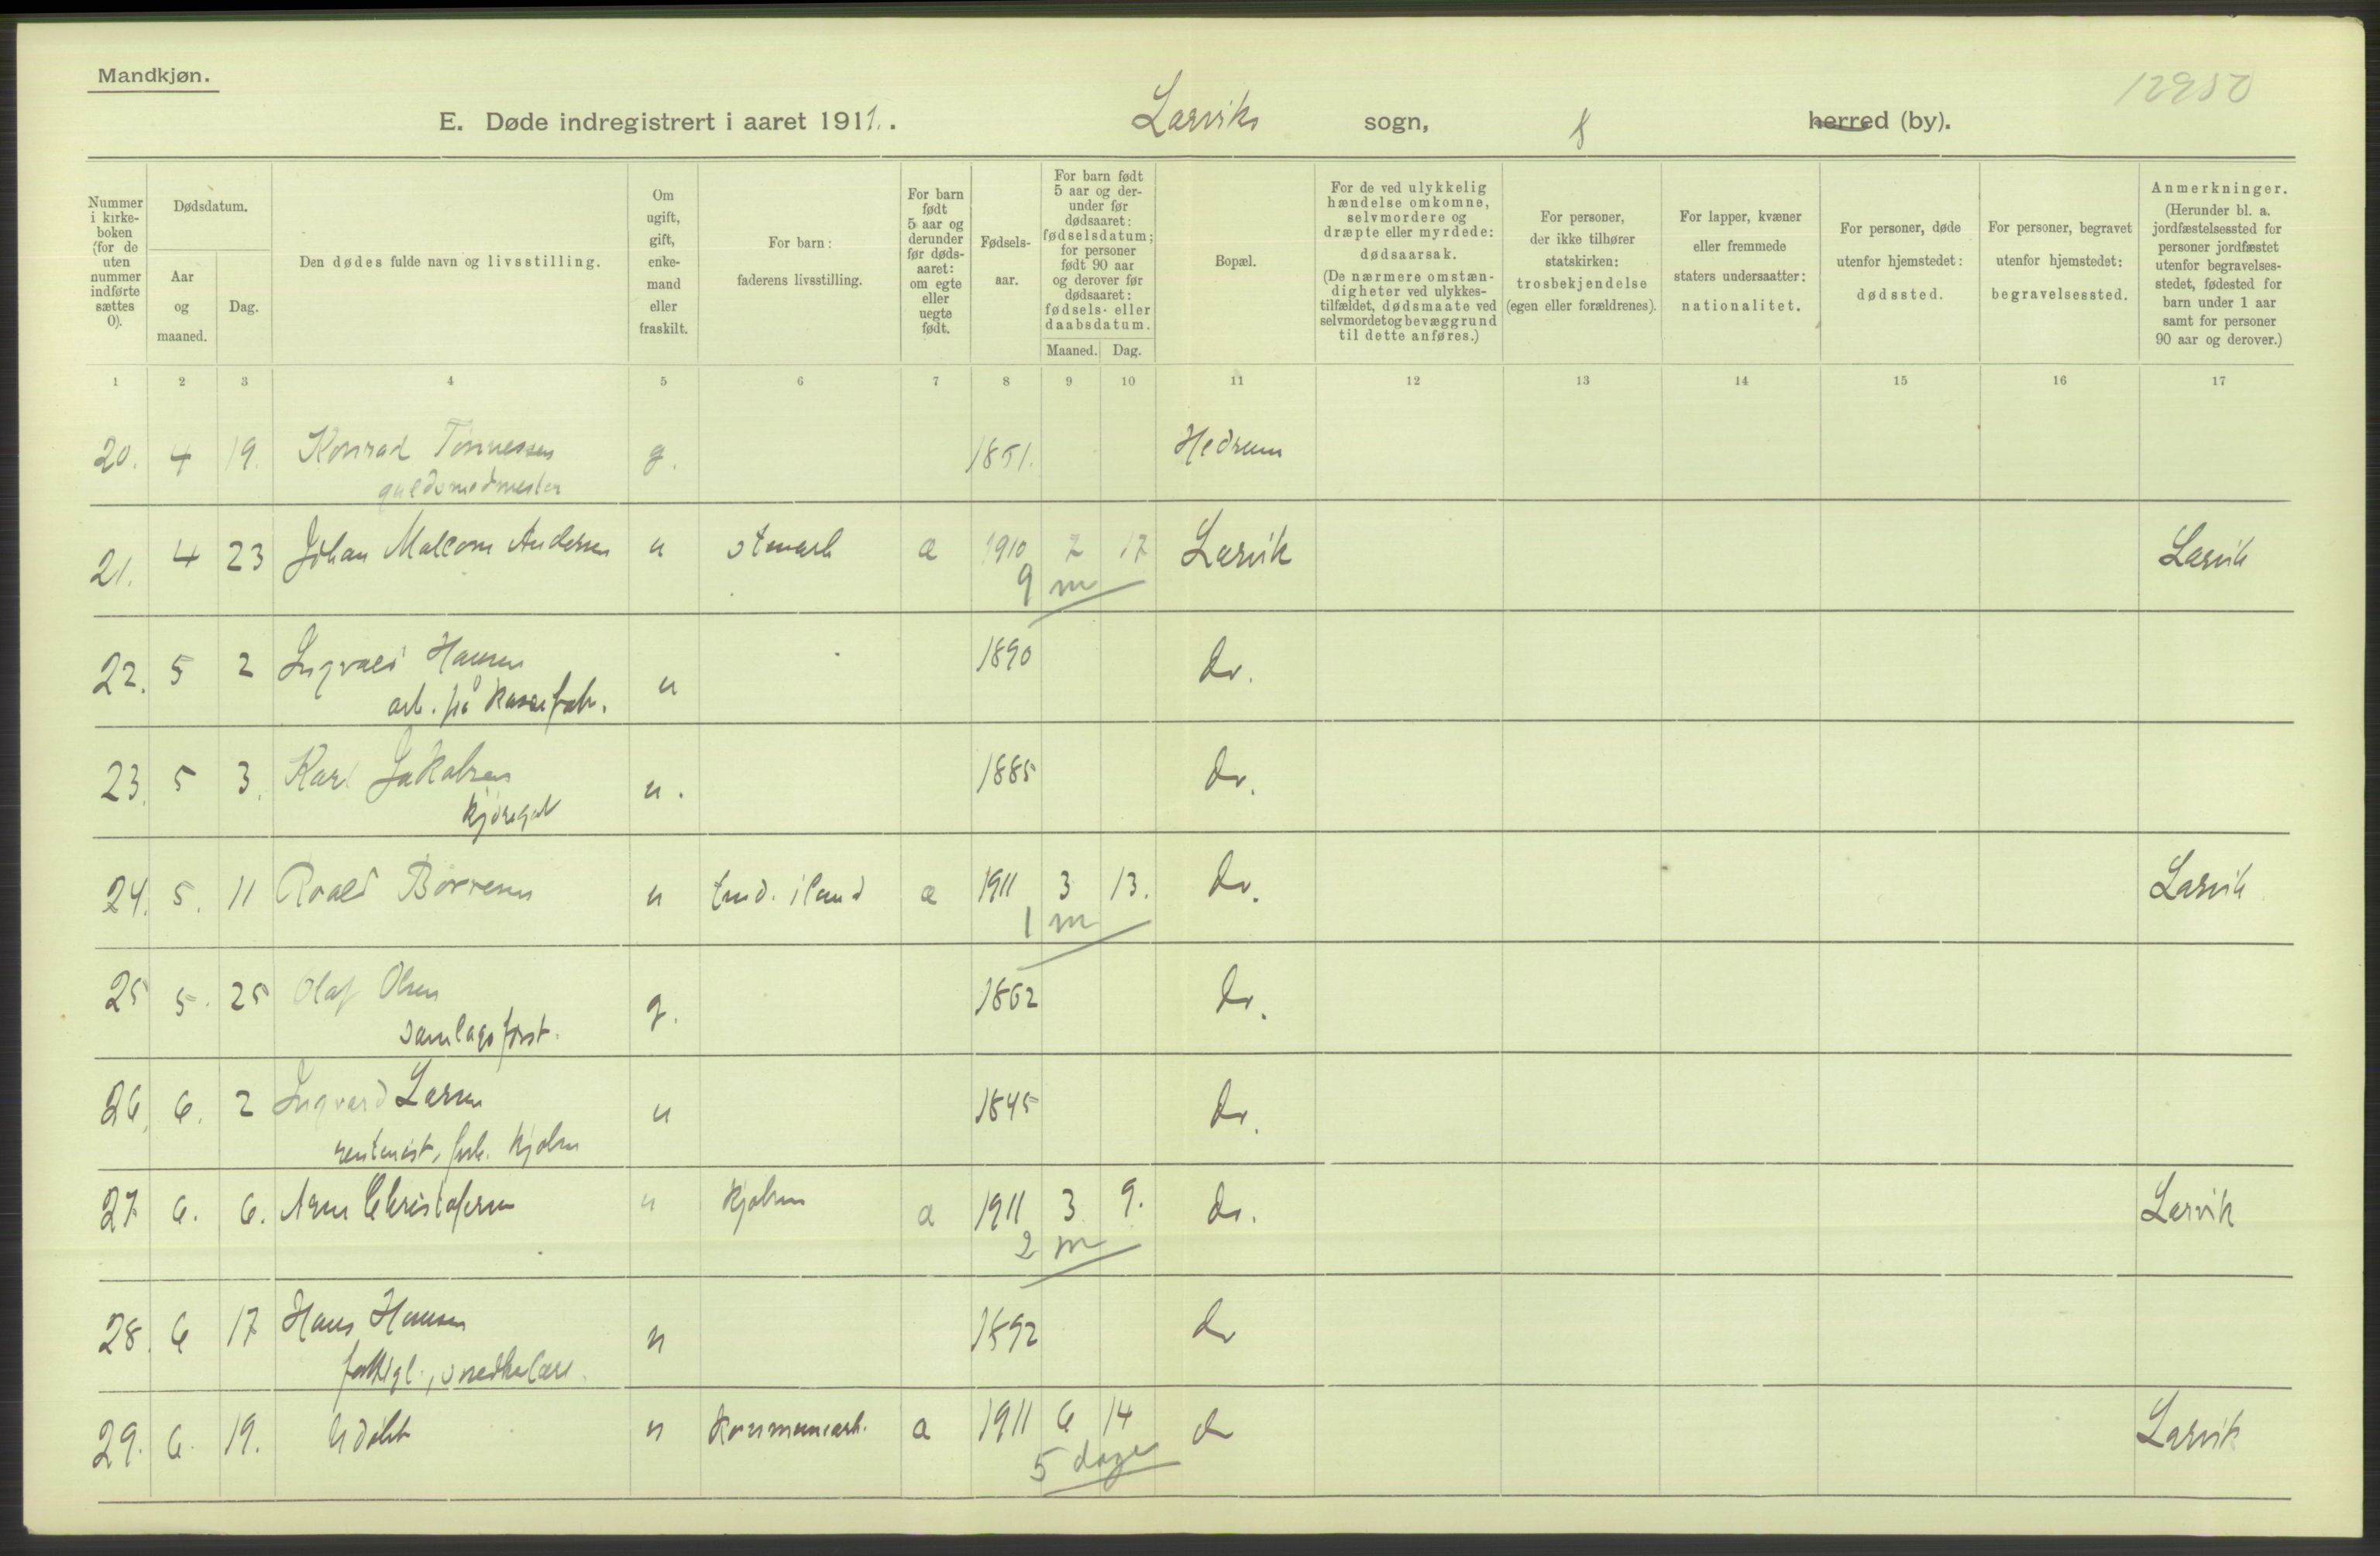 Mandkjøn.
12950
E. Døde indregistrert i aaret 1911. Larviks sogn, herred (by).
Nummer i kirkeboken (for de uten nummer indførte sættes 0).
Dødsdatum.
Aar og maaned.
Dag.
Den dødes fulde navn og livsstilling.
Om ugift, gift, enkemand eller fraskilt.
For barn: faderens livsstilling.
For barn født 5 aar og derunder før dødsaaret: om egte eller uegte født.
Fødselsaar.
For barn født 5 aar og derunder før dødsaaret: fødselsdatum; for personer født 90 aar og derover før dødsaaret: fødsels- eller daabsdatum.
Maaned. Dag.
Bopæl.
For de ved ulykkelig hændelse omkomne, selvmordere og dræpte eller myrdede: dødsaarsak. (De nærmere omstændigheter ved ulykkestilfældet, dødsmaate ved selvmord et og bevæggrund til dette anføres.)
For personer, der ikke tilhører statskirken: trosbekjendelse (egen eller forældrenes).
For lapper, kvæner eller fremmede staters undersaatter: nationalitet.
For personer, døde utenfor hjemstedet: dødssted.
For personer, begravet utenfor hjemstedet: begravelsessted.
Anmerkninger. (Herunder bl. a. jordfæstelsessted for personer jordfæstet utenfor begravelsesstedet, fødested for barn under 1 aar samt for personer 90 aar og derover.)
1 2 3 4 5 6 7 8 9 10 11 12 13 14 15 16 17
20. 4 19. Konrad Tønnessen g. 1851. Hedrum
guldsmedmester
21. 4 23 Johan Malcom Andersen u stuearb a 1910 7 17 Larvik Larvik
9 m
22. 5 2 Ingvald Hansen u 1890 do.
arb. på kassefabr.
23. 5 3. Karl Jakobsen u. 1885 do.
kjøregut
24. 5. 11 Roald Børresen u tmd. iland a 1911 3 13. do. Larvik
1 m
25 5. 25 Olaf Olsen g. 1862 do.
samlagsforst.
26. 6. 2 Ingvard Larsen u 1845 do.
rentenist, forh. kjøbm
27 6. 6. Arne Christofersen u kjøbm a 1911 3 9. do. Larvik
2 m
28. 6 17 Hans Hansen u 1892 do
fattigl., snedkerlære.
29. 6. 19. Udøbt u kommunearb. a 1911 6 14 do Larvik
5 dage